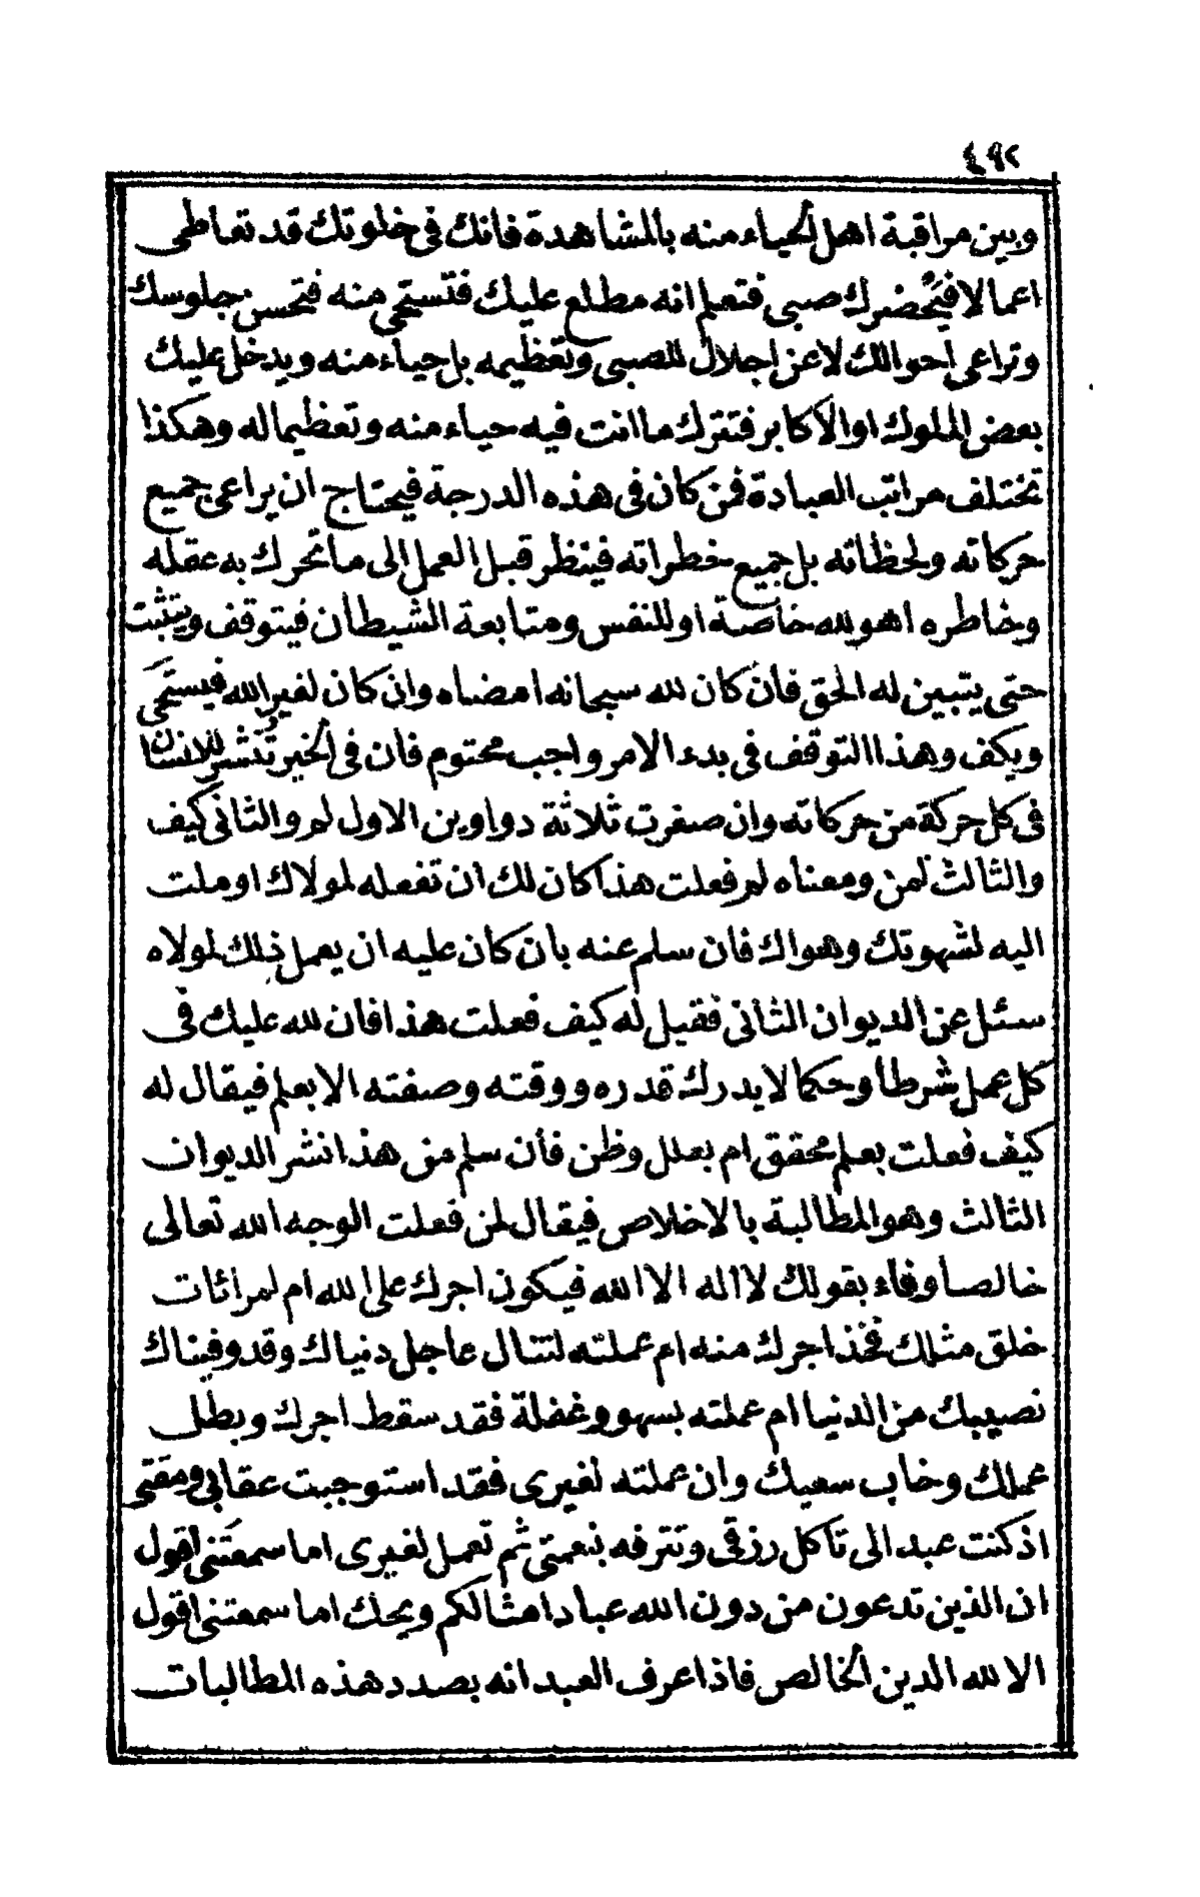 ٤٩٢
وبين مراقبة اهل الحياء منه بالمشاهدة فانك في خلوتك قد تعاطى
اعمالا فيحضرك صبى فتعلم انه مطلع عليك فتستحى منه فتحسن جلوسك
وتراعى احوالك لا عن اجلال للصبى وتعظيمه بل حياء منه ويدخل عليك
بعض الملوك او الاكابر فتترك ما انت فيه حياء منه وتعظيما له وهكذا
تختلف مراتب العبادة فمن كان فى هذه الدرجة فيحتاج ان يراعى جميع
حركاته ولحظاته بل جميع خطراته فينظر قبل العمل الى ما تحرك به عقله
وخاطره اهو لله خاصة او للنفس ومتابعة الشيطان فيتوقف ويتثبت
حتى يتبين له الحق فان كان لله سبحانه امضاه وان كان لغير الله فيستحى
ويكف وهذا التوقف فى بدء الامر واجب محتوم فان فى الخبر تنشر للانسان
فى كل حركة من حركاته وان صغرت ثلاثة دواوين الاول لم والثانى كيف
والثالث لمن ومعناه لم فعلت هذا كان لك ان تفعله لمولاك او ملت
اليه لشهوتك وهواك فان سلم عنه بان كان عليه ان يعمل ذلك لمولاه
سئل عن الديوان الثانى فقيل له كيف فعلت هذا فان لله عليك فى
كل عمل شرطا وحكما لا يدرك قدره ووقته وصفته الا بعلم فيقال له
كيف فعلت بعلم محقق ام بعلل وظن فان سلم من هذا نشر الديوان
الثالث وهو المطالبة بالاخلاص فيقال لمن فعلت الوجه الله تعالى
خالصا وفاء بقولك لا اله الا الله فيكون اجرك على الله ام لمرائات
خلق مثلك فخذ اجرك منه ام عملته لتنال عاجل دنياك وقد وفيناك
نصيبك من الدنيا ام عملته بسهو وغفلة فقد سقط اجرك وبطل
عملك وخاب سعيك وان عملته لغيرى فقد استوجبت عقابى ومقتى
اذ كنت عبدا لى تاكل رزقى وتترفه بنعمتى ثم تعمل لغيرى اما سمعتنى اقول
ان الذين تدعون من دون الله عباد امثالكم ويحك اما سمعتنى اقول
الا لله الدين الخالص فاذا عرف العبد انه بصدد هذه المطالبات